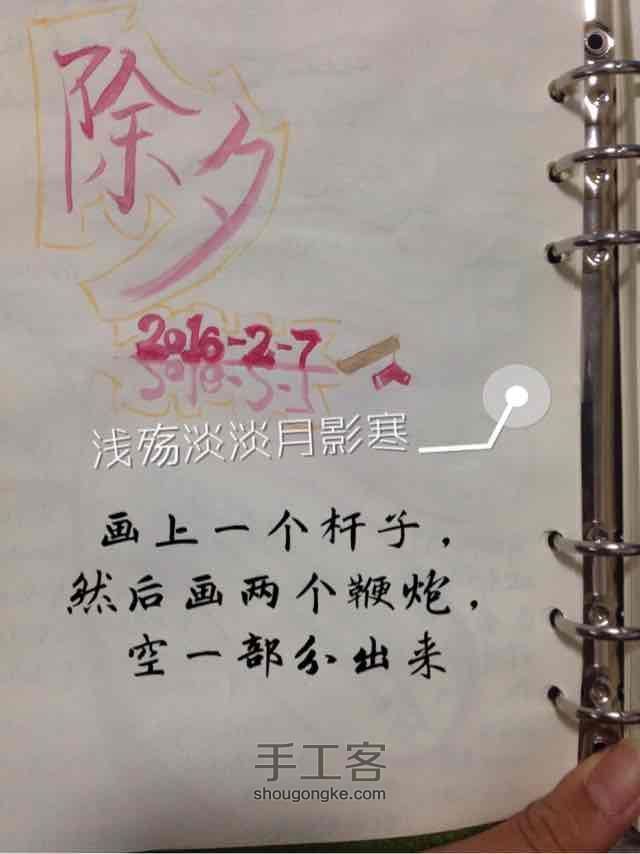 除夕
2016-2-7
浅殇淡淡月影寒
画上一个杆子，
然后画两个鞭炮，
空一部分出来
手工客
shougongke.com